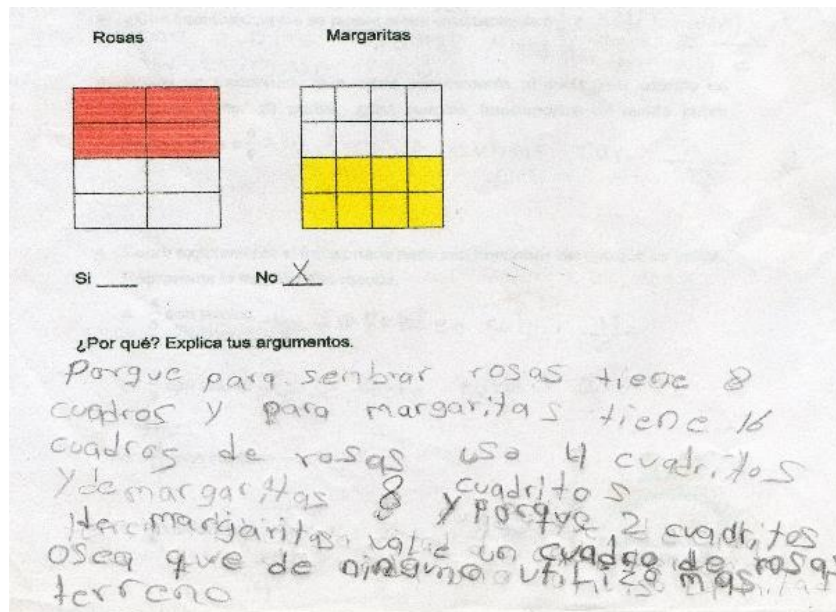 Rosas Margaritas
Si ____ No X
¿Por qué? Explica tus argumentos.
Porque para sembrar rosas tiene 8
cuadros y para margaritas tiene 16
cuadros de rosas uso 4 cuadritos
Y de margaritas 8 cuadritos
y porque 2 cuadritos
de margaritas vale un cuadro de rosas
osea que de ninguno utilizo mas
terreno